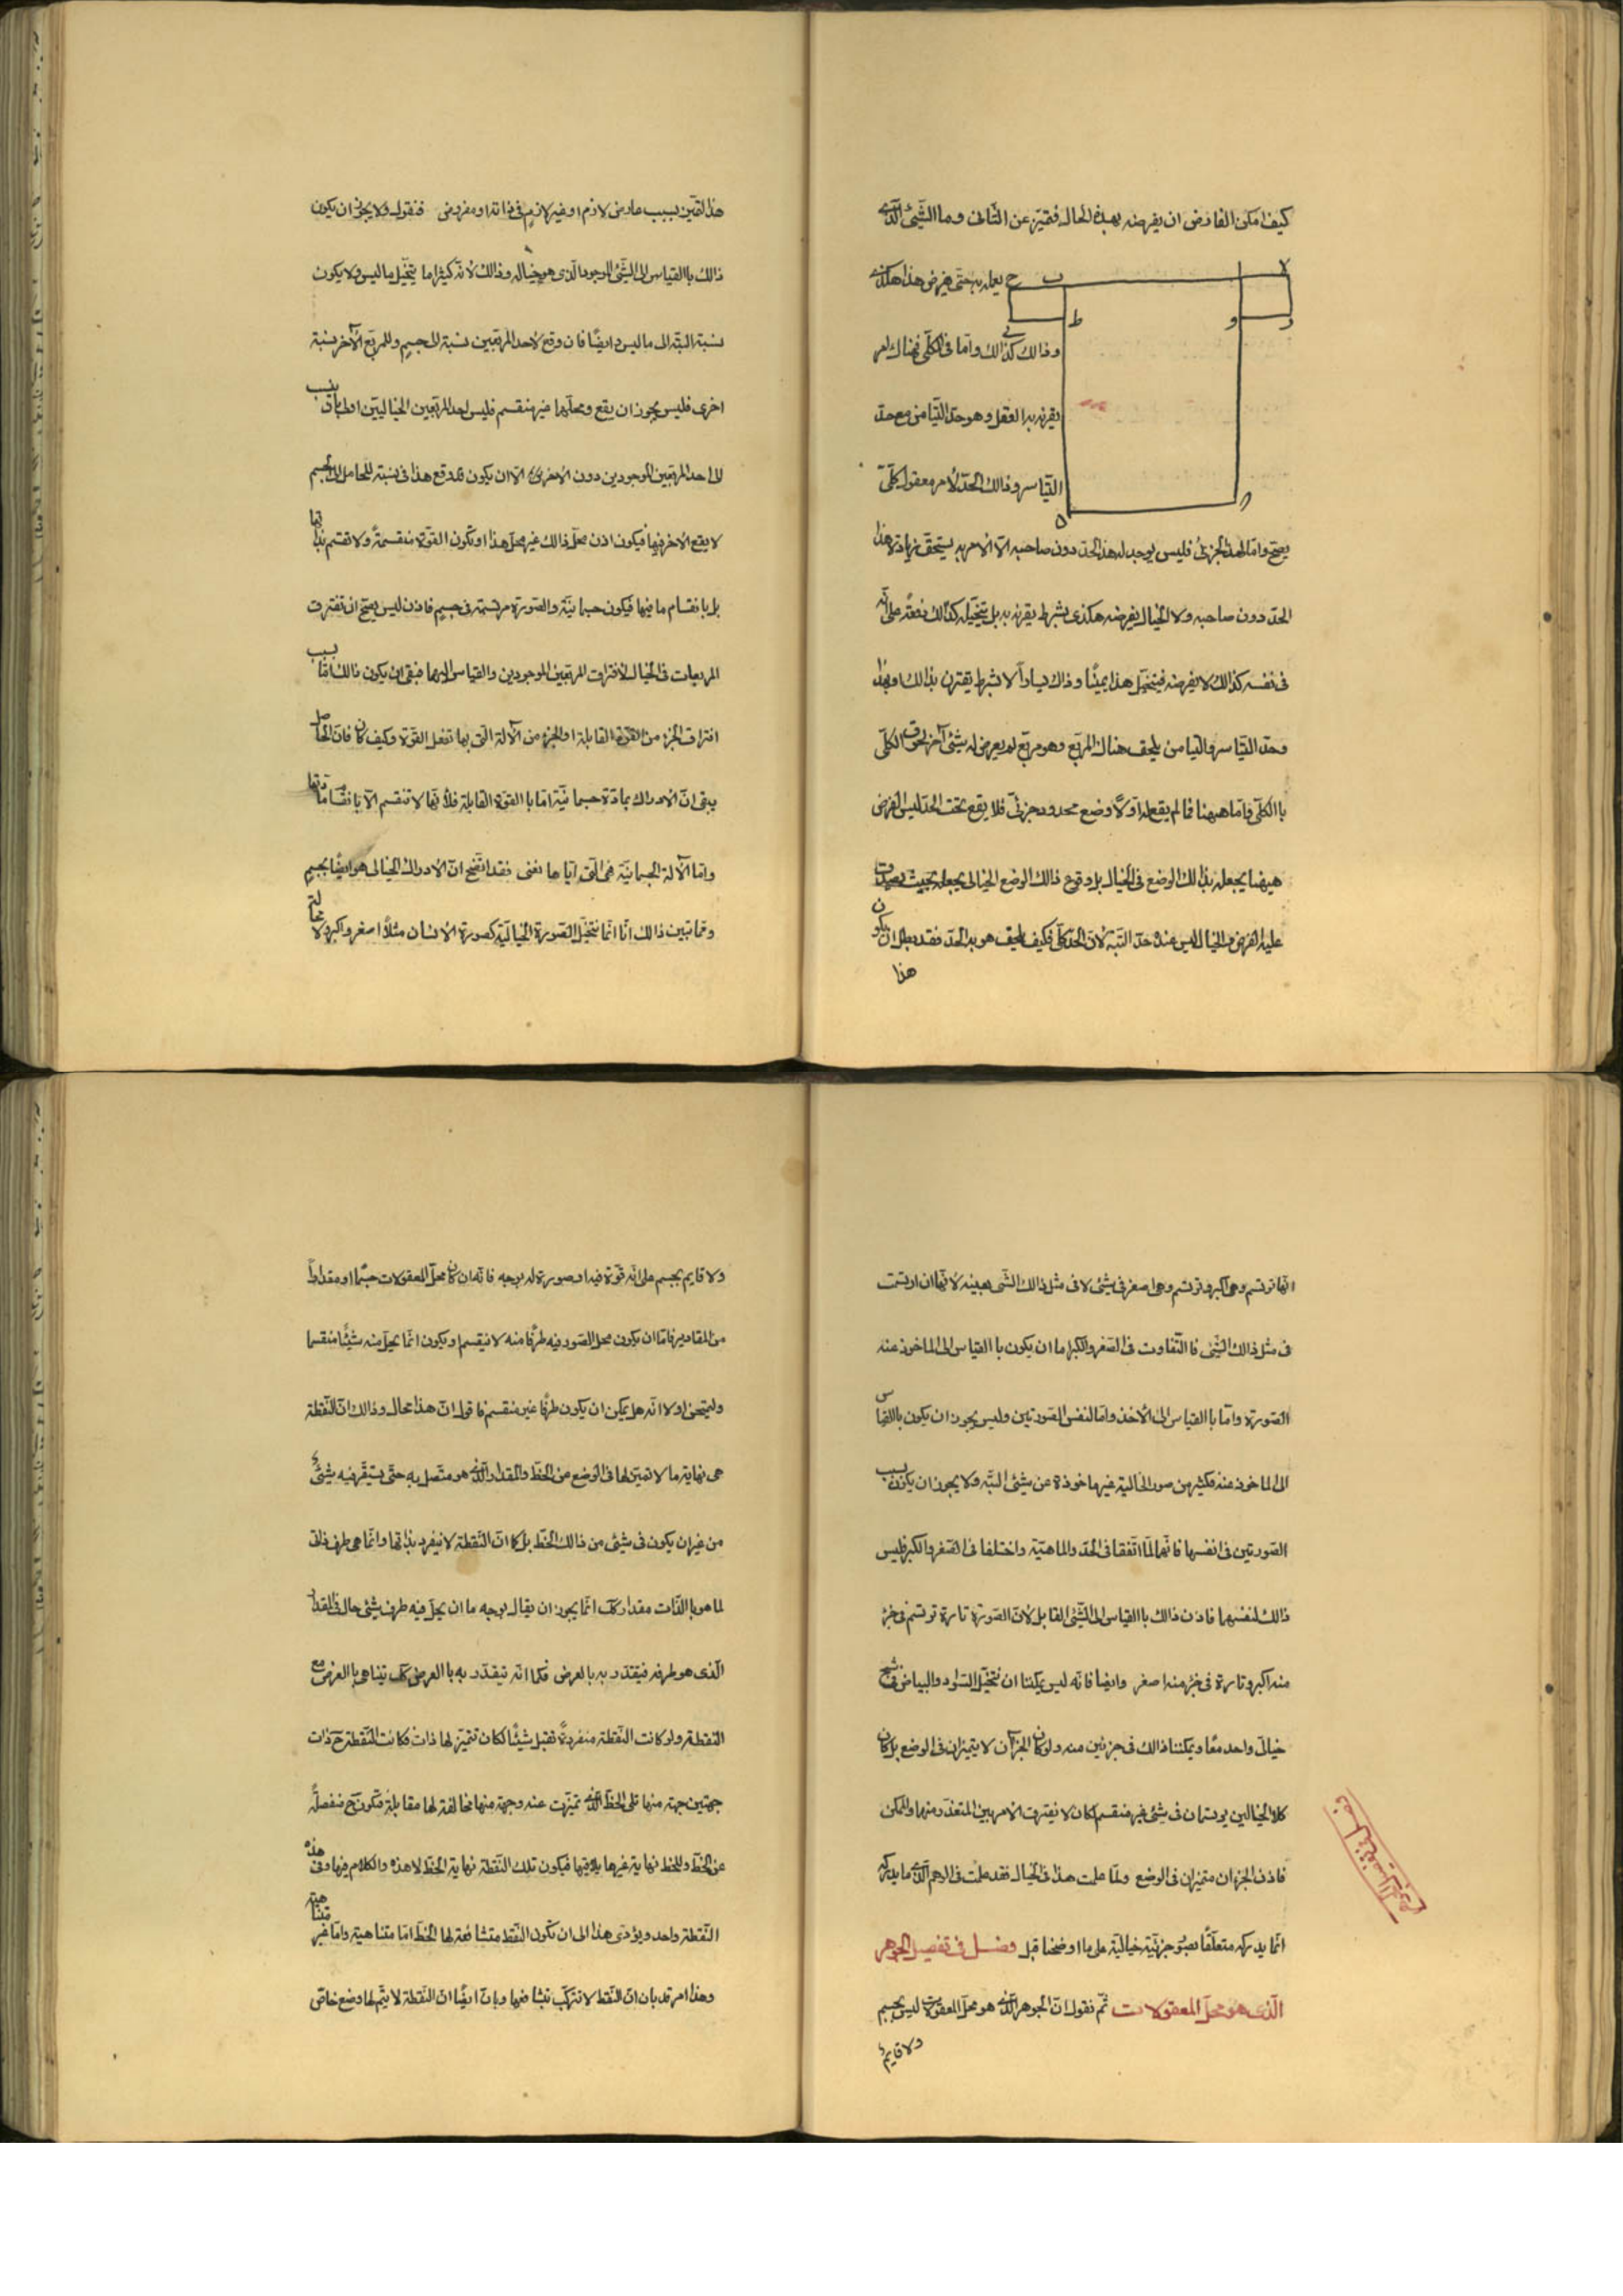 كيف امكن الفارض ان يفرضه بهذه الحال فتميز عن الثانى وما الشئ الذى
يعمله به حتى يفرض هذا هكذى
وذالك كذالك واما فى الكلى فهناك امر
يقرنه به العقل وهو حد التيامن مع حد
التياسر وذالك الحد لامر معقول كلى
يصح واما لهذا الجزئى فليس يوجد له هذا الحد دون صاحبه الا لامر به يستحق زيادة هذا
الحد دون صاحبه ولا الخيال يفرضه هكذى بشرط يقرنه به بل يتخيله كذالك دفعة على انه
فى نفسه كذالك لا يفرضه فيتخيل هذا يمينا وذاك يسارا لا بشرط يقترن بذالك او بهذا
وحد التياسر والتيامن يلحق هناك المربع وهو مربع لم يعرض له شئ آخر لحوق الكلى
با الكلى واما ههنا فما لم يقع له اولا وضع محدود جزئى فلا يقع تحت الحد ليس الفرض
هيهنا يجعله بذالك الوضع فى الخيال بل وقوع ذالك الوضع الخيالى يجعله بحيث يصدق
عليه الفرض والخيال ليس عنده حد البتة لان الحد كلى فكيف يلحق هو به الحد فقد بطل ان يكون
هذا
هذا لتميز بسبب عارض لازم او غير لازم فى ذاته او مفروض فنقول ولا يجوز ان يكون
ذالك باالقياس الى الشئ الموجود الذى هو خياله وذالك لانه كثيرا ما يتخيل ما ليس ولا يكون
نسبة البتة الى ما ليس وايضا فان وقع لاحد المربعين نسبة الى جسم وللمربع الآخر نسبة
اخرى فليس يجوز ان يقع ومحلهما غير منقسم فليس احد المربعين الخياليين اولى بان ينسب
الى احد المربعين الموجودين دون الاخرى الا ان يكون قد وقع هذا فى نسبة للحامل الى الجسم
لا يقع الاخر فيها فيكون اذن محل ذالك غير محل هذا او تكون القوة منقسمة ولا تنقسم بذاتها
بل بانقسام ما فيها فيكون جسمانية والصورة مرتسمة فى جسم فاذن ليس يصح ان تفترق
المربعات فى الخيال لافتراق المربعين الموجودين والقياس اليهما فبقى ان يكون ذالك اما بسبب
افتراق الجزء من القوة القابلة او الجزء من الآلة التى بها تفعل القوة وكيف كان فان الحاصل
يبقى ان الادراك بمادة جسمانية اما با القوة القابلة فلانها لا تنقسم الا بانقسام مادتها
واما الآلة الجسمانية فهى التى اياها نعنى فقد اتضح ان الادراك الخيالى هو ايضا بجسم
ومما تبين ذالك انا انما نتخيل الصورة الخيالية كصورة الانسان مثلا اصغر واكبر ولا محالة
انها ترتسم وهى اكبر وترتسم وهى اصغر فى شئ لا فى مثل ذالك الشئ بعينه لانها ان ارتسمت
فى مثل ذالك الشئ فا التفاوت فى الصغر والكبر اما ان يكون با القياس الى الماخوذ عنه
الصورة واما با القياس الى الآخذ واما لنفس الصورتين وليس يجوز ان يكون باالقياس
الى الماخوذ عنه فكثير من صور الخيالية غير ماخوذة عن شئ البتة ولا يجوز ان يكون بسبب
الصورتين فى انفسها فانهما لما اتفقا فى الحد والماهية واختلفا فى الصغر والكبر فليس
ذالك لنفسهما فاذن ذالك باالقياس الى الشئ القابل لان الصورة تارة ترتسم فى جزء
منه اكبر وتارة فى جزء منه اصغر وايضا فانه ليس يمكننا ان نتخيل السواد والبياض فى شبح
خيالى واحد معا ويمكننا ذالك فى جزئين منه ولو كان الجزآن لا يتميزان فى الوضع بل كان
كلا الخيالين يرتسمان فى شئ غير منقسم لكان لا يفترق الامر بين المتعذر منهما والممكن
فاذن الجزءان متميزان فى الوضع ولما علمت هذا فى الخيال فقد علمت فى الوهم الذى ما يدركه
انما يدركه متعلقا بصورة جزئية خيالية على ما اوضحنا قبل فصل فى تفصيل الجوهر
الذى هو محل المعقولات ثم نقول ان الجوهر الذى هو محل المعقولات ليس بجسم
ولا قايم
ولا قايم بجسم على انه قوة فيه او صورة له بوجه فانه ان كان محل المعقولات جسما او مقدارا
من المقادير فاما ان يكون محل الصور فيه طرفا منه لا ينقسم او يكون انما يحل منه شيئا منقسما
وليمتحن اولا انه هل يمكن ان يكون طرفا غير منقسم فاقول ان هذا محال وذالك ان النقطة
هى نهاية ما لا تميز لها فى الوضع عن الخط والمقدار الذى هو متصل به حتى يستقر فيه شئ
من غير ان يكون فى شئ من ذالك الخط بل كما ان النقطة لا ينفرد بذاتها وانما هى طرف ذاتى
لما هو با الذات مقدار كك انما يجوز ان يقال بوجه ما ان يحل فيه طرف شئ حال فى المقدار
الذى هو طرفه فيتقدر به بالعرض فكما انه يتقدر به با العرض كك يتناهى با العرض مع
النقطة ولو كانت النقطة منفردة تقبل شيئا لكان تتميز لها ذات فكانت النقطة ح ذات
جهتين جهة منها تلى الخط الذى تميزت عنه وجهة منها مخالفة لها مقابلة فتكون ح منفصلة
عن الخط وللخط نهاية غيرها يلاقيها فيكون تلك النقطة نهاية الخط لا هذه والكلام فيها وفى هذه
النقطة واحد ويؤدى هذا الى ان تكون النقط متشافعة لها الخط اما متناهية واما غير متناهية
وهذا امر قد بان ان النقط لا تتركب بتشافعها وبان ايضا ان النقطة لا يتم لها وضع خاص